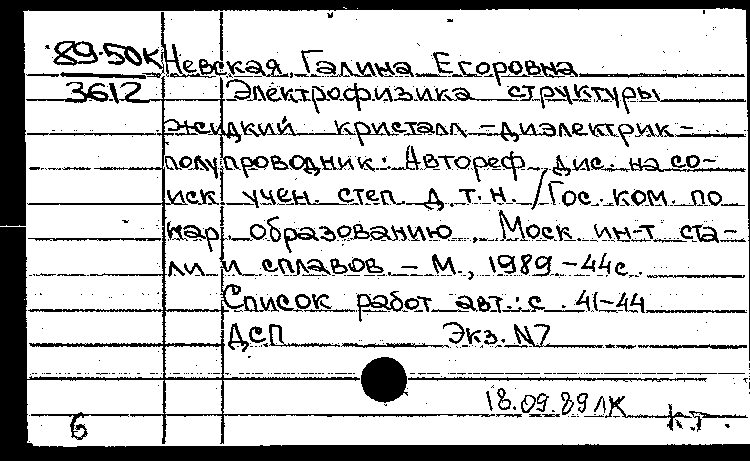 89-50К Невская, Галина Егоровна
3612 Электрофизика структуры
жидкий кристалл – диэлектрик –
полупроводник: Автореф. дис. на со-
иск. учен. степ. д. т. н. / Гос. ком. по
нар. образованию, Моск. ин-т ста-
ли и сплавов. – М., 1989 – 44 с.
Список работ авт.: с. 41–44
ДСП Экз. N7
18.09.89 ЛК
6 к.т.